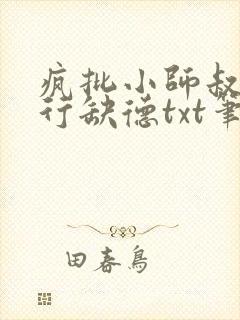 疯批小师叔
行缺德txt笔
田春鸟